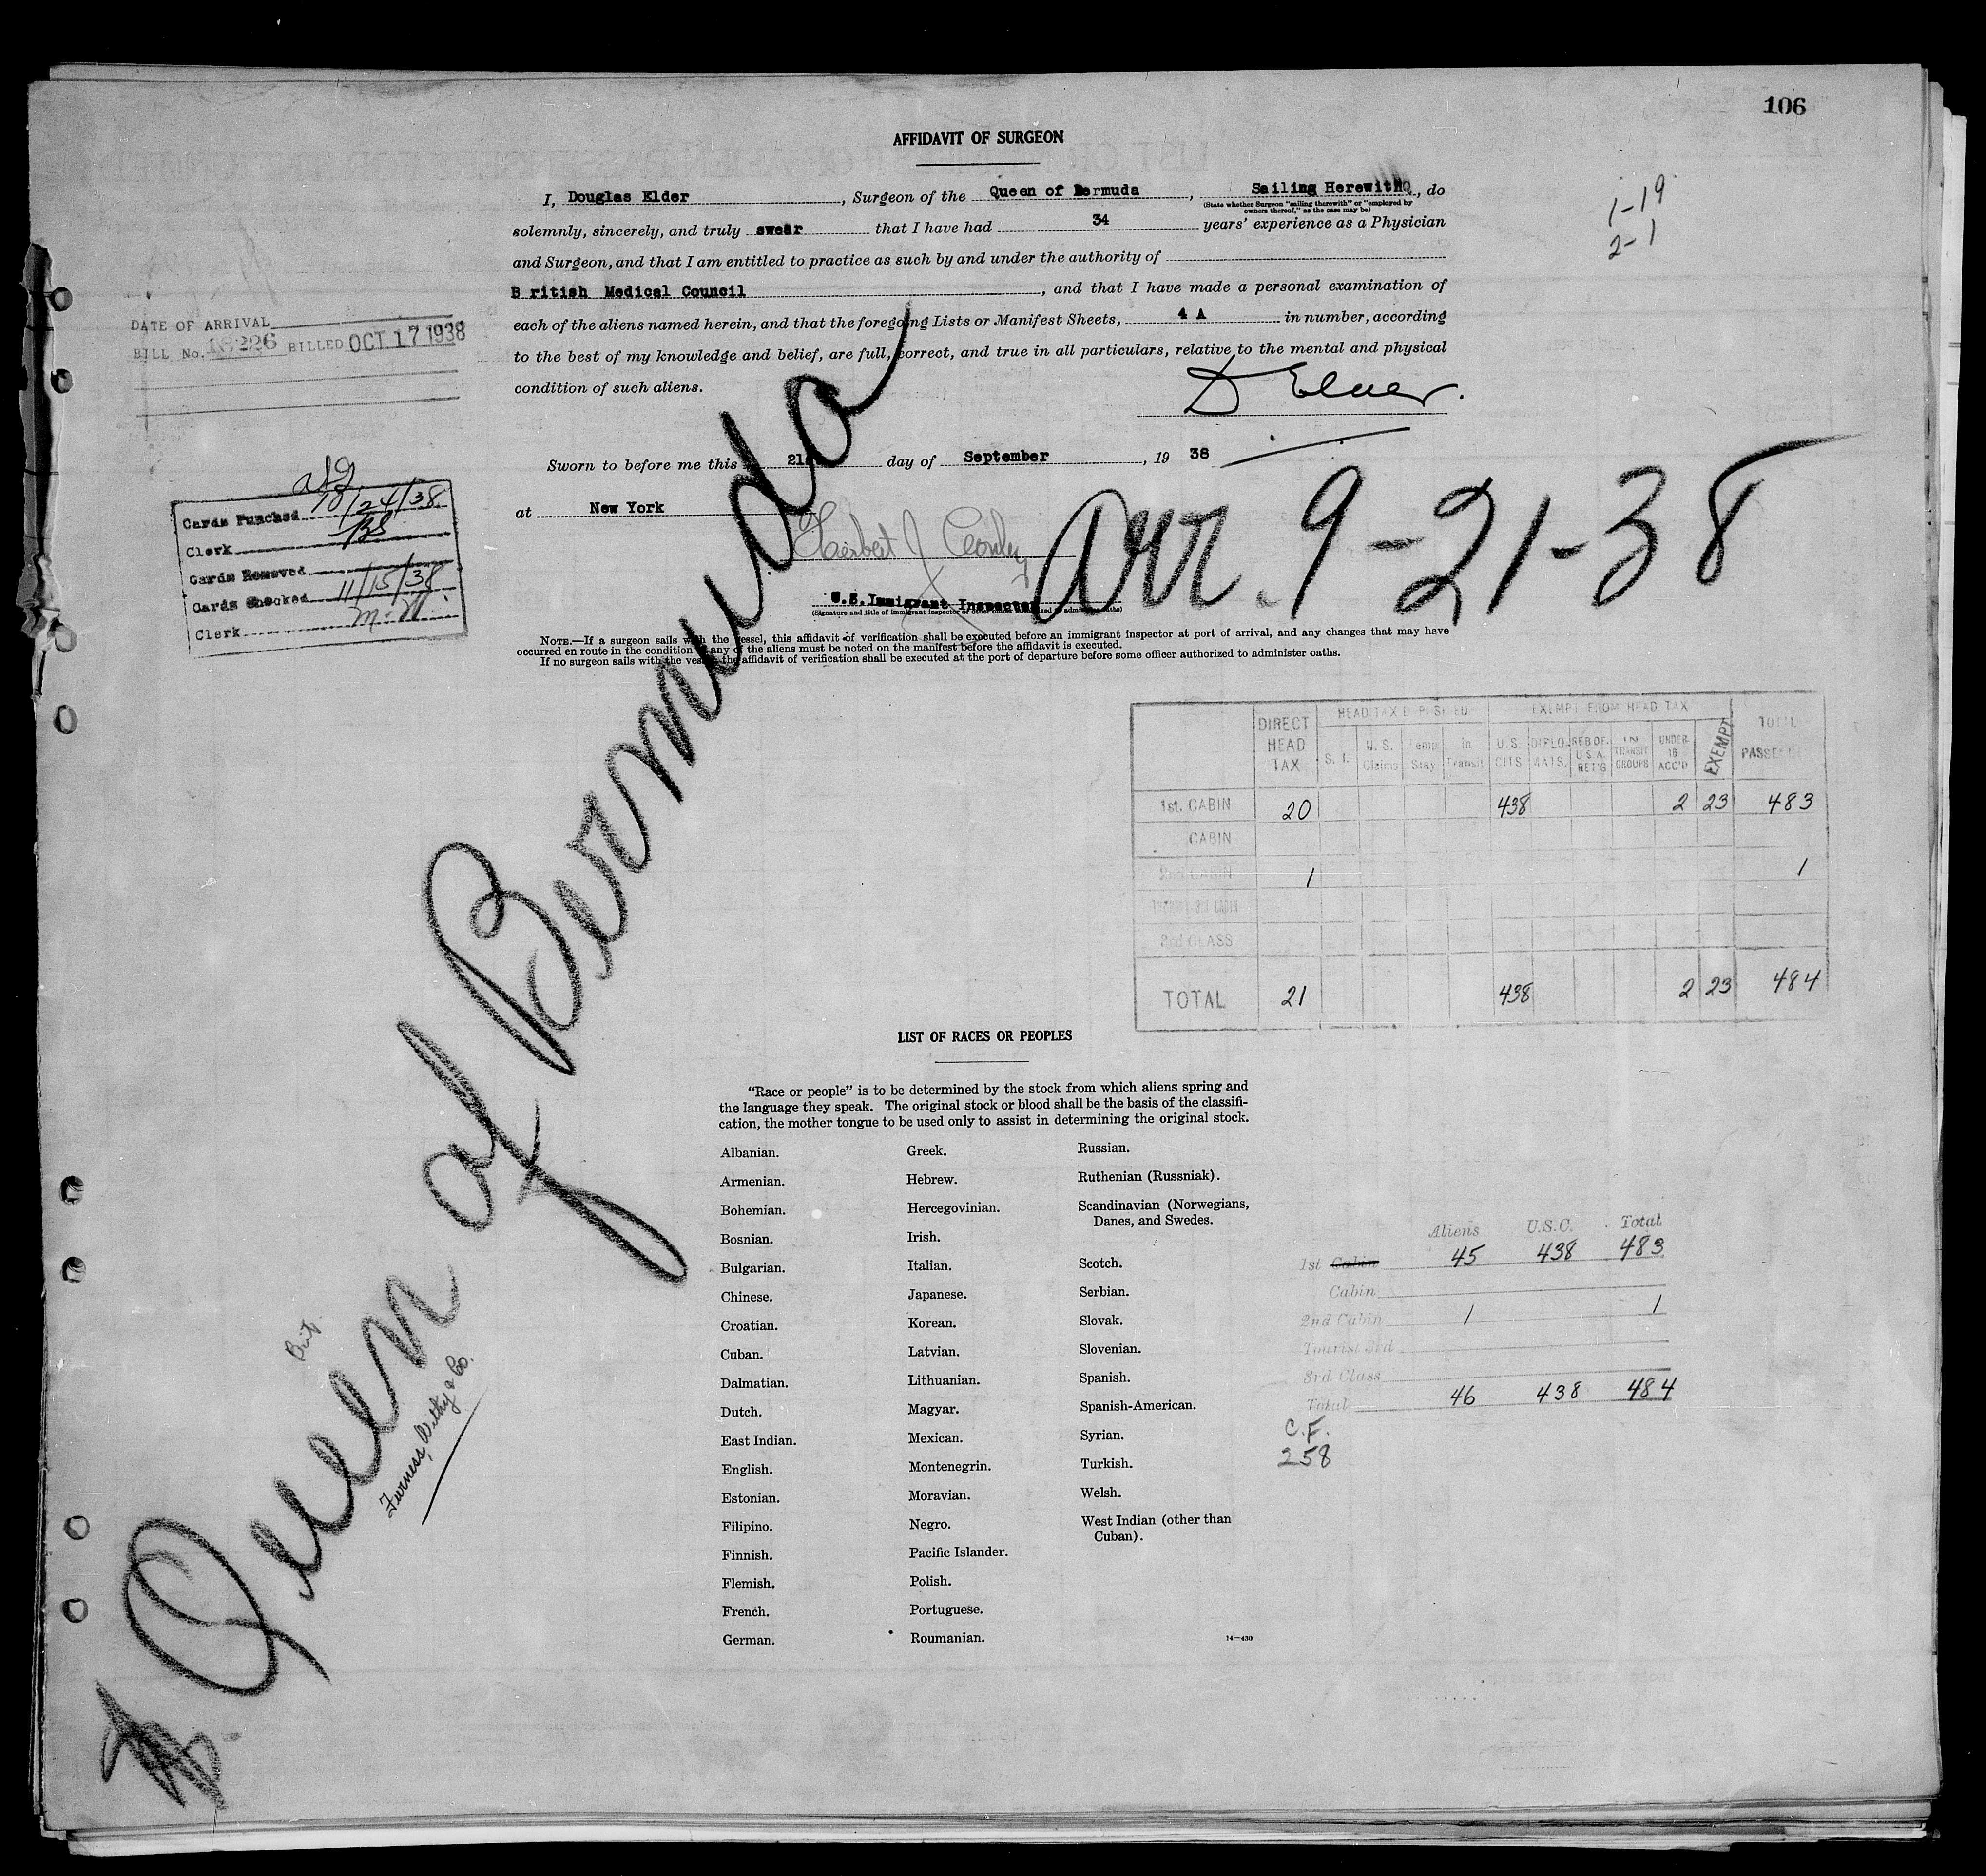 106
AFFIDAVIT OF SURGEON
I, Douglas Elder, Surgeon of the Queen of Bermuda, Sailing Herewith, do
(State whether Surgeon "sailing therewith" or "employed by
owners thereof," as the case may be)
1-19
2-1
solemnly, sincerely, and truly swear that I have had 34 years' experience as a Physician
and Surgeon, and that I am entitled to practice as such by and under the authority of
B ritish Medical Council, and that I have made a personal examination of
each of the aliens named herein, and that the foregoing Lists or Manifest Sheets, 4 A in number, according
to the best of my knowledge and belief, are full, correct, and true in all particulars, relative to the mental and physical
condition of such aliens.
D Elder.
DATE OF ARRIVAL
BILL No. 18226 BILLED OCT 17 1938
Sworn to before me this 21 day of September, 19 38
at New York
Herbert J
U.S. Immigrant Inspector
(Signature and title of immigrant inspector or other officer authorized to administer oaths)
Arr. 9-21-38
Cards Punched 10/24/38
Clerk
Cards Removed
Cards Checked 11/15/38
Clerk
NOTE.—If a surgeon sails with the vessel, this affidavit of verification shall be executed before an immigrant inspector at port of arrival, and any changes that may have
occurred en route in the condition of any of the aliens must be noted on the manifest before the affidavit is executed.
If no surgeon sails with the vessel, the affidavit of verification shall be executed at the port of departure before some officer authorized to administer oaths.
Queen of Bermuda
Brit.
Furness, Withy & Co.
HEAD TAX DEPOSITED EXEMPT FROM HEAD TAX
DIRECT HEAD TAX S. I. U. S. Claims Temp Stay In Transit U.S. CITS DIPLO-MATS. RES OF U.S.A. RET'G IN TRANSIT GROUPS UNDER 16 ACC'D EXEMPT TOTAL PASSENGERS
1st. CABIN 20 438 2 23 483
CABIN
2nd CABIN 1 1
3rd CLASS
TOTAL 21 438 2 23 484
LIST OF RACES OR PEOPLES
"Race or people" is to be determined by the stock from which aliens spring and
the language they speak. The original stock or blood shall be the basis of the classifi-
cation, the mother tongue to be used only to assist in determining the original stock.
Albanian.
Armenian.
Bohemian.
Bosnian.
Bulgarian.
Chinese.
Croatian.
Cuban.
Dalmatian.
Dutch.
East Indian.
English.
Estonian.
Filipino.
Finnish.
Flemish.
French.
German.
Greek.
Hebrew.
Hercegovinian.
Irish.
Italian.
Japanese.
Korean.
Latvian.
Lithuanian.
Magyar.
Mexican.
Montenegrin.
Moravian.
Negro.
Pacific Islander.
Polish.
Portuguese.
Roumanian.
Russian.
Ruthenian (Russniak).
Scandinavian (Norwegians,
Danes, and Swedes.
Scotch.
Serbian.
Slovak.
Slovenian.
Spanish.
Spanish-American.
Syrian.
Turkish.
Welsh.
West Indian (other than
Cuban).
14—430
Aliens U.S.C. Total
1st Cabin 45 438 483
Cabin
2nd Cabin 1 1
Tourist 3rd
3rd Class
Total 46 438 484
C.F.
258